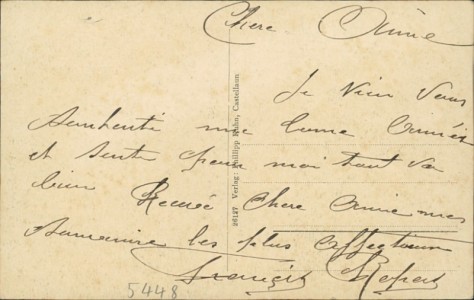 Chere Amie
Je Vien Vous
Souhaité une bonne Année
et Sente pour moi tout va
bien Recevé Chere Amie mes
les plus affectueux
François
26127 Verlag: Phillipp Kuhn, Castellaun
5448